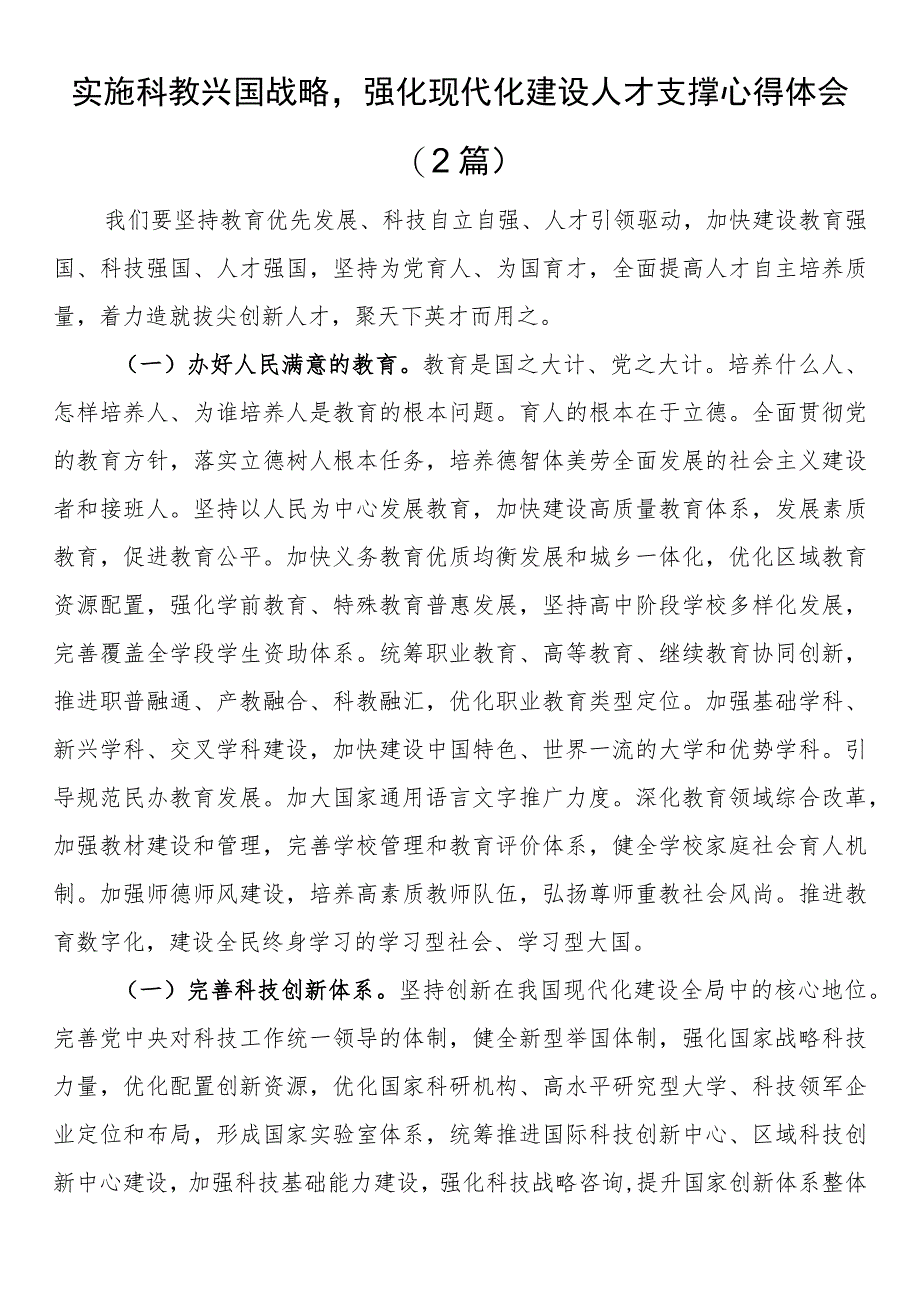 实施科教兴国战略，强化现代化建设人才支撑心得体会
（2篇）
我们要坚持教育优先发展、科技自立自强、人才引领驱动，加快建设教育强
国、科技强国、人才强国，坚持为党育人、为国育才，全面提高人才自主培养质
量，着力造就拔尖创新人才，聚天下英才而用之。
（一）办好人民满意的教育。教育是国之大计、党之大计。培养什么人、
怎样培养人、为谁培养人是教育的根本问题。育人的根本在于立德。全面贯彻党
的教育方针，落实立德树人根本任务，培养德智体美劳全面发展的社会主义建设
者和接班人。坚持以人民为中心发展教育，加快建设高质量教育体系，发展素质
教育，促进教育公平。加快义务教育优质均衡发展和城乡一体化，优化区域教育
资源配置，强化学前教育、特殊教育普惠发展，坚持高中阶段学校多样化发展，
完善覆盖全学段学生资助体系。统筹职业教育、高等教育、继续教育协同创新，
推进职普融通、产教融合、科教融汇，优化职业教育类型定位。加强基础学科、
新兴学科、交叉学科建设，加快建设中国特色、世界一流的大学和优势学科。引
导规范民办教育发展。加大国家通用语言文字推广力度。深化教育领域综合改革，
加强教材建设和管理，完善学校管理和教育评价体系，健全学校家庭社会育人机
制。加强师德师风建设，培养高素质教师队伍，弘扬尊师重教社会风尚。推进教
育数字化，建设全民终身学习的学习型社会、学习型大国。
（一）完善科技创新体系。坚持创新在我国现代化建设全局中的核心地位。
完善党中央对科技工作统一领导的体制，健全新型举国体制，强化国家战略科技
力量，优化配置创新资源，优化国家科研机构、高水平研究型大学、科技领军企
业定位和布局，形成国家实验室体系，统筹推进国际科技创新中心、区域科技创
新中心建设，加强科技基础能力建设，强化科技战略咨询,提升国家创新体系整体